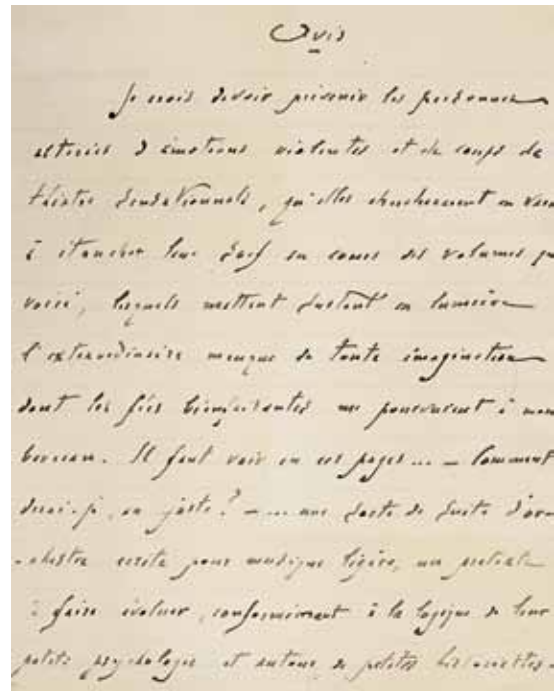 Avis
Je crois devoir prévenir les personnes
altérées d'émotions violentes et de coups de
théâtre sensationnels, qu'elles chercheraient en vain
à étancher leur soif au cours des volumes que
voici, lesquels mettent surtout en lumière
l'extraordinaire manque de toute imagination
dont les fées bienfaisantes me pourvurent à mon
berceau. Il faut voir en ces pages... — Comment
dirai-je, au juste ? — ... une sorte de suite d'or-
-chestre écrite pour musique légère, un prétexte
à faire évoluer, conformément à la logique de leur
petite psychologie et autour de petites historiettes